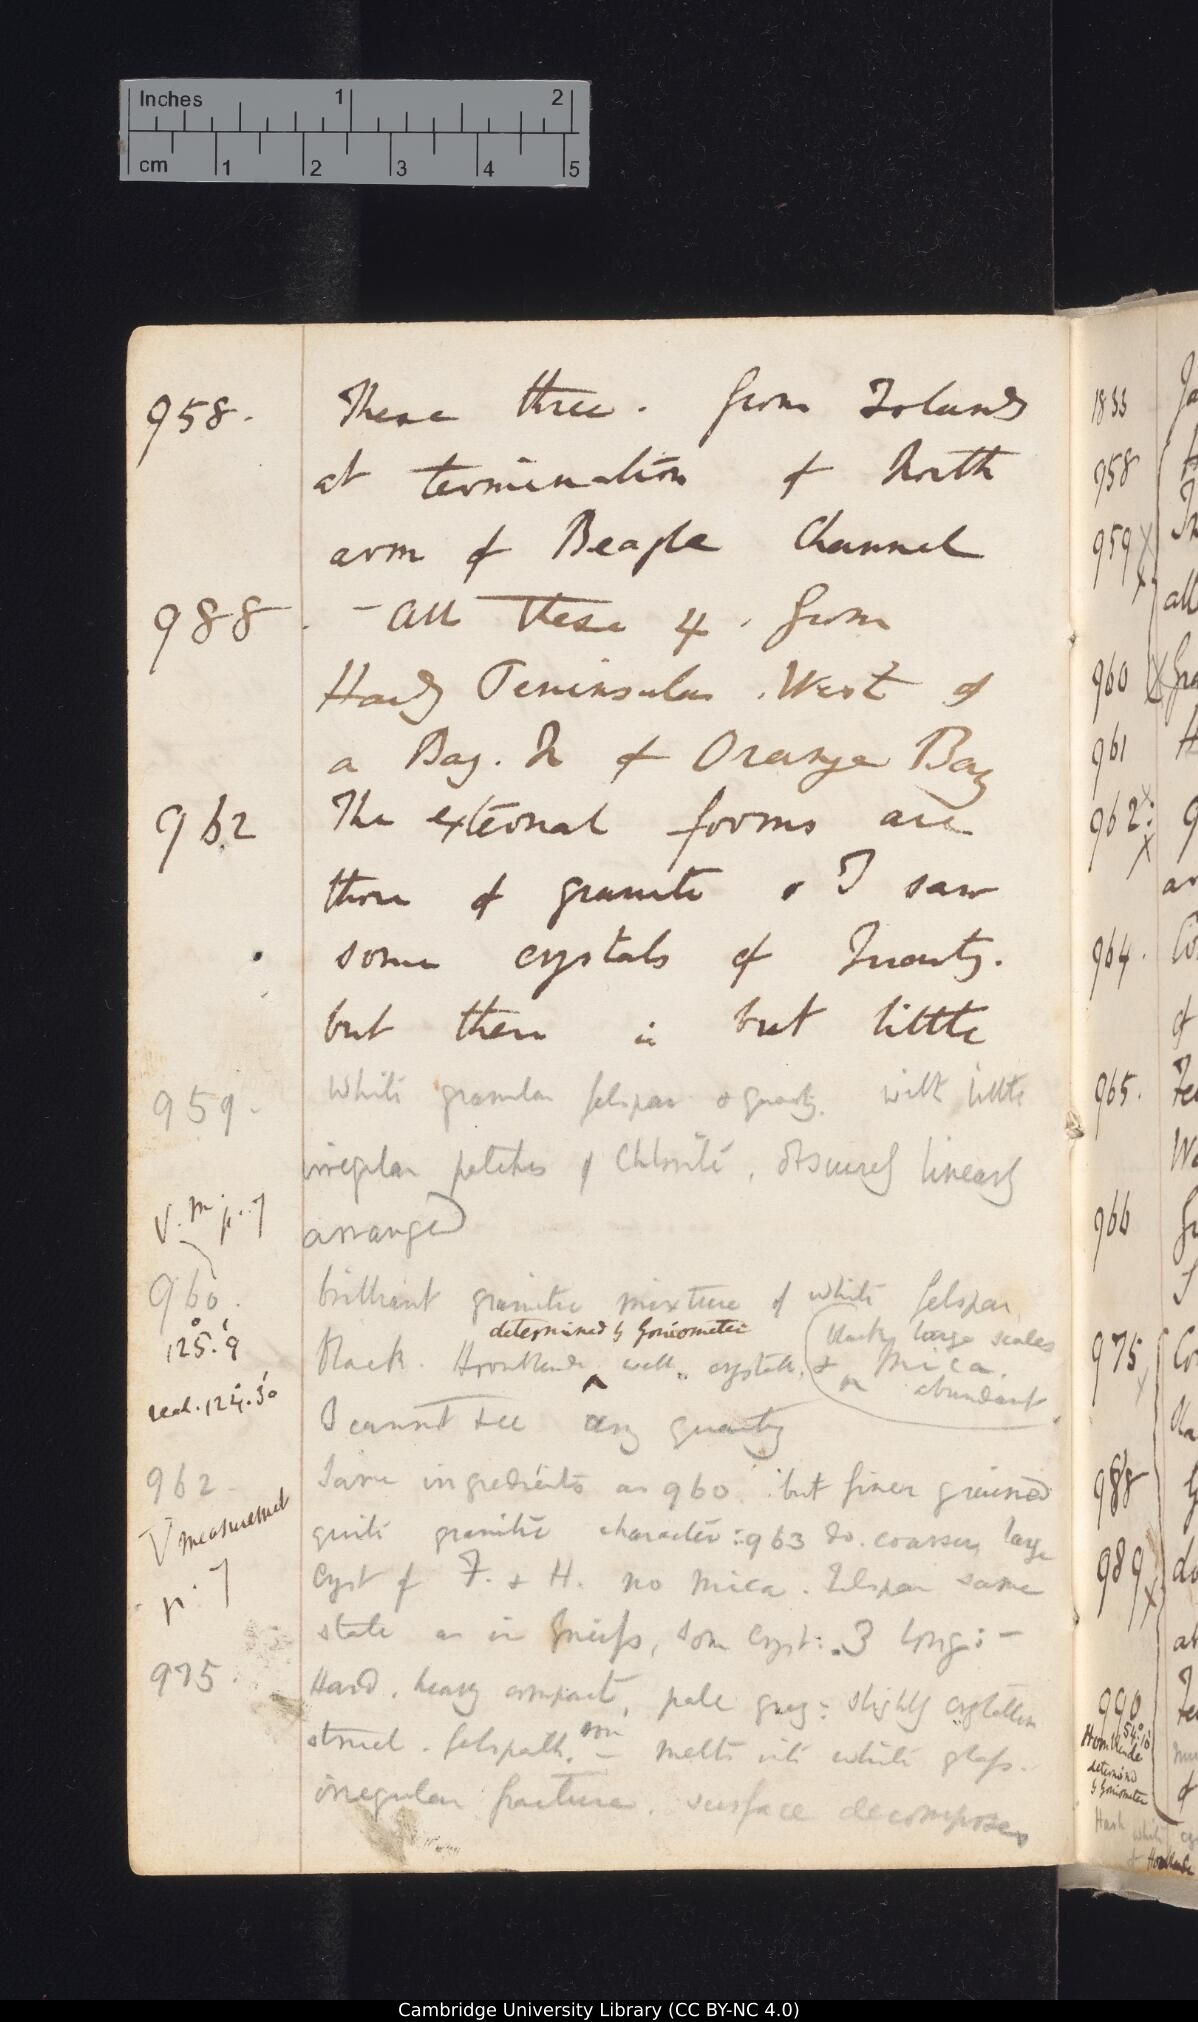 Inches 1 2
cm 1 2 3 4 5
958. These three. from Islands
at termination of North
arm of Beagle Channel
988. – All these 4. from
Hardy Peninsular. West of
a Bay. N of Orange Bay
962 The external forms are
those of granite & I saw
some crystals of Quartz.
but there is but little
959. White granular felspar & quartz. with little
irregular patches of Chlorite, obscurely linearly
arranged
V. M p. 7
960. brilliant granitic mixture of white felspar
determined by Goniometer
125°.9'
Black. Hornblende well crystall. & (black, large scales
Mica.
abundant
read. 124.30
I cannot see any quartz
962. Same ingredients as 960. but finer grained
V measurement
p. 7
quite granitic character: 963 do. coarser, large
Cryst of F. & H. no mica. Felspar same
state as in Gneiss, some Cryst: .3 long: –
975. Hard, heavy compact, pale grey: slightly crystalline
struct felspath. – melts into white glass.
irregular fracture. surface decomposes
1833
958
959
all
960
961
962
964.
of
965.
966
975
988
989
990
54°.10'
Hornblende
determined
by Goniometer
Hard white
& Hornblende
Cambridge University Library (CC BY-NC 4.0)